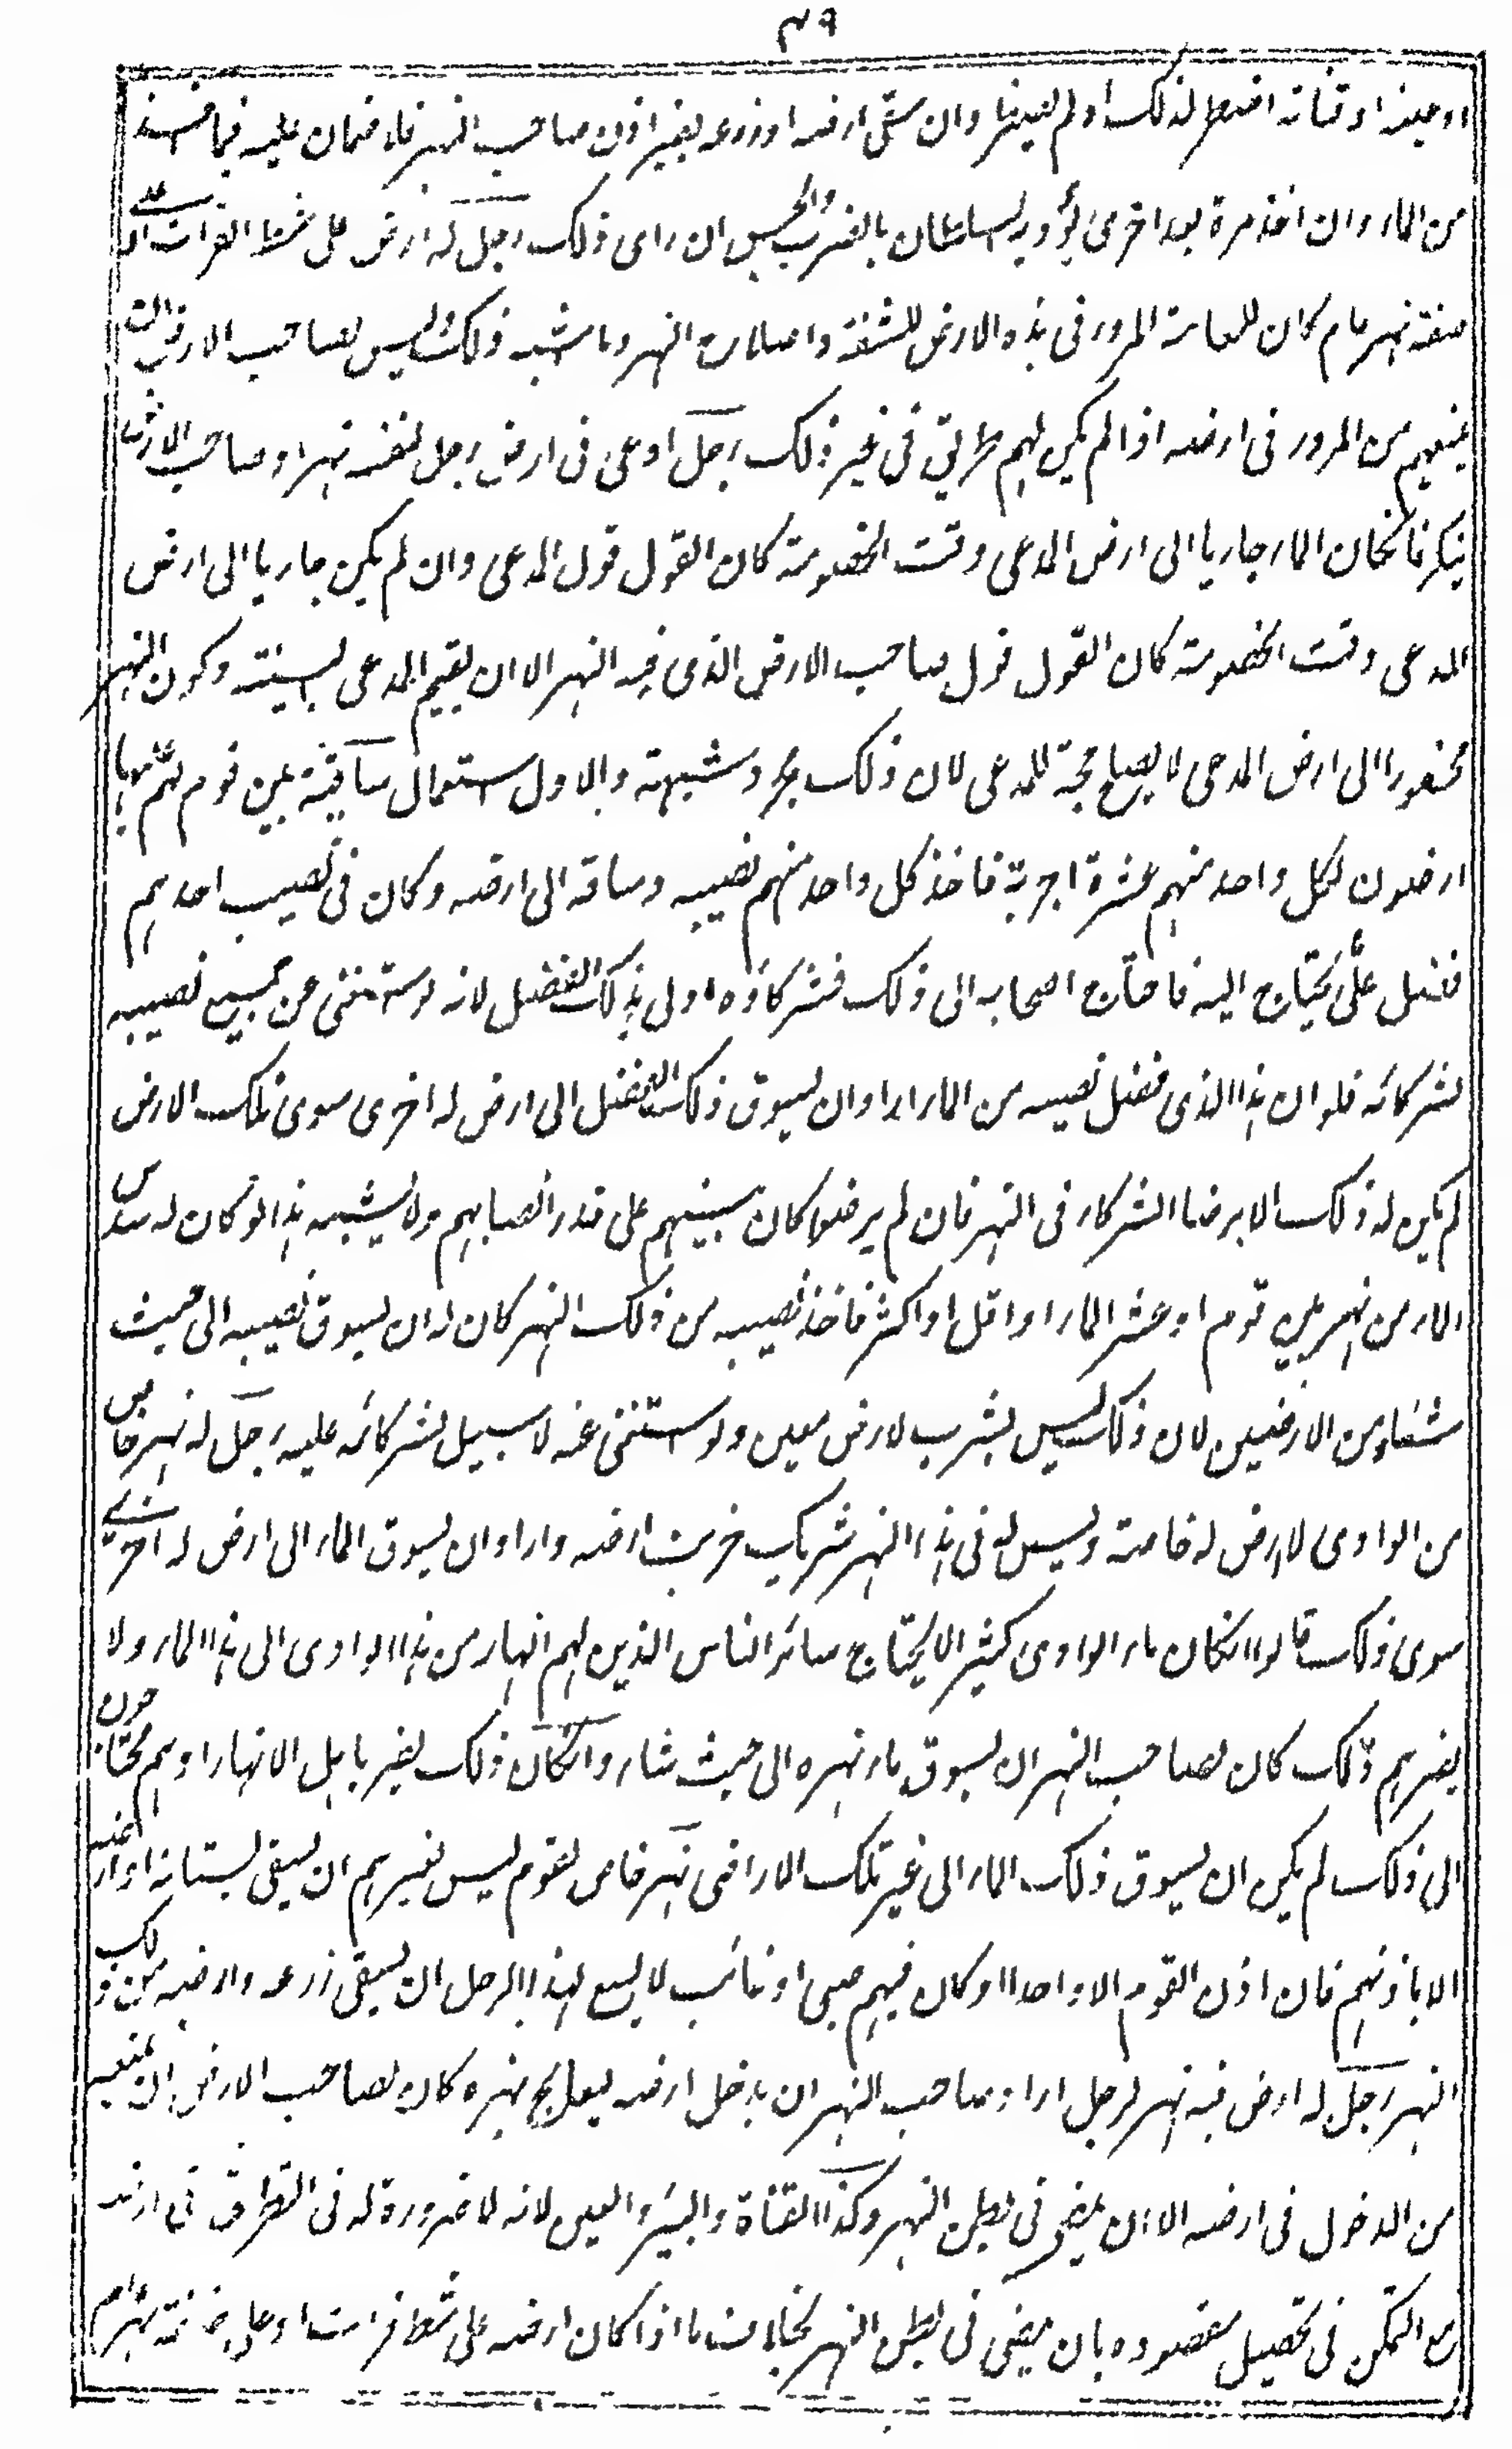 ٤٩
او عينه او قناته اضطر لذلك او لم يضطر وان سقى ارضه او زرعه بغير اذن صاحب النهر فلا ضمان عليه فيما اخذ
من الماء وان اخذ مرة بعد اخرى يؤدبه السلطان بالضرب والحبس ان راى ذلك رجل له ارض على شط الفرات او على
ضفة نهر عام كان للعامة المرور فى هذه الارض للشفة واصلاح النهر وما اشبه ذلك وليس لصاحب الارض ان
يمنعهم من المرور فى ارضه اذا لم يكن لهم طريق فى غير ذلك رجل ادعى فى ارض رجل لنفسه نهرا وصاحب الارض
ينكر فانكان الماء جاريا الى ارض المدعى وقت الخصومة كان القول قول المدعى وان لم يكن جاريا الى ارض
المدعى وقت الخصومة كان القول قول صاحب الارض الذى فيه النهر الا ان يقيم المدعى البينة وكون النهر
محفورا الى ارض المدعى لا يصلح حجة للمدعى لان ذلك مجرد شبهة والاول استعمال ساقية بين قوم لهم عليها
ارضون لكل واحد منهم عشرة اجربة فاخذ كل واحد منهم نصيبه وساقه الى ارضه وكان فى نصيب احدهم
فضل عما يحتاج اليه فاحتاج اصحابه الى ذلك فشركاؤه اولى بذلك الفضل لانه لو استغنى عن جميع نصيبه
لشركائه فلو ان هذا الذى فضل نصيبه من الماء اراد ان يسوق ذلك الفضل الى ارض له اخرى سوى تلك الارض
لم يكن له ذلك الا برضا الشركاء فى النهر فان لم يرضوا كان بينهم على قدر انصبائهم ولا يشبه هذا لو كان له سدس
الماء من نهر بين قوم او عشر الماء او اقل او اكثر فاخذ نصيبه من ذلك النهر كان له ان يسوق نصيبه الى حيث
شاء من الارضين لان ذلك ليس بشرب لارض معين ولو استغنى عنه لا سبيل لشركائه عليه رجل له نهر خاص
من الوادى لارض له خاصة وليس له فى هذا النهر شريك خربت ارضه واراد ان يسوق الماء الى ارض له اخرى
سوى ذلك قالوا انكان ماء الوادى كثيرا لا يحتاج سائر الناس الذين لهم انهار من هذا الوادى الى هذا الماء ولا
يضرهم ذلك كان لصاحب النهر ان يسوق ماء نهره الى حيث شاء وانكان ذلك يضر باهل الانهار او هم محتاجون
الى ذلك لم يكن ان يسوق ذلك الماء الى غير تلك الاراضى نهر خاص لقوم ليس لغيرهم ان يسقى بستانه او ارضه
الا باذنهم فان اذن القوم الا واحدا او كان فيهم صبى او غائب لا يسع لهذا الرجل ان يسقى زرعه وارضه من ذلك
النهر رجل له ارض فيه نهر لرجل اراد صاحب النهر ان يدخل ارضه ليعالج نهره كان لصاحب الارض ان يمنعه
من الدخول فى ارضه الا ان يمضى فى بطن النهر وكذا القناة والبئر والعين لانه لا ضرورة له فى التطرق فى ارضه
مع التمكن فى تحصيل مقصوده بان يمضى فى بطن النهر بخلاف ما اذا كان ارضه على شط فرات او على ضفة نهر عام